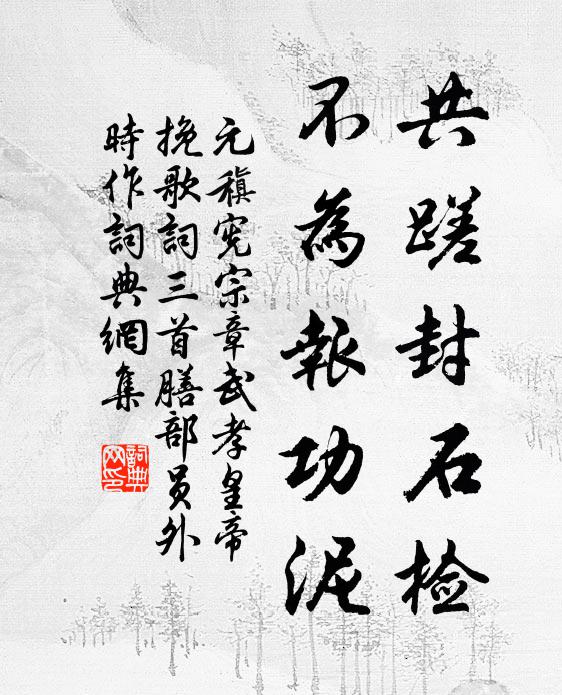 共蹉封石检
不為報功泥
元稹宪宗章武孝皇帝
挽歌詞三首膳部员外
時作詞典網集
詞典网印